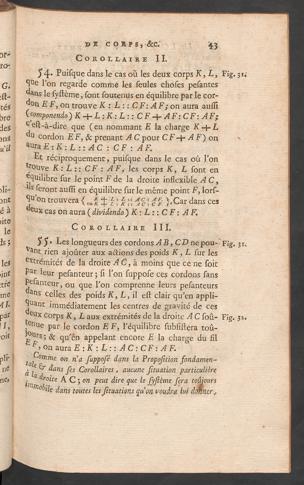 DE CORPS, &c. 43
COROLLAIRE II.
54. Puisque dans le cas où les deux corps K, L, Fig. 31.
que l'on regarde comme les seules choses pesantes
dans le système, sont soutenus en équilibre par le cor-
don EF, on trouve K : L :: CF : AF; on aura aussi
(componendo) K+L : K : L :: CF+AF : CF : AF;
c'est-à-dire que (en nommant E la charge K+L
du cordon EF, & prenant AC pour CF+AF) on
aura E : K : L :: AC : CF : AF.
Et réciproquement, puisque dans le cas où l'on
trouve K : L :: CF : AF, les corps K, L sont en
équilibre sur le point F de la droite inflexible AC,
ils seront aussi en équilibre sur le même point F, lors-
qu'on trouvera Car dans ces
deux cas on aura (dividendo) K : L :: CF : AF.
COROLLAIRE III.
55. Les longueurs des cordons AB, CD ne pou- Fig. 31.
vant rien ajouter aux actions des poids K, L sur les
extrémités de la droite AC, à moins que ce ne soit
par leur pesanteur; si l'on suppose ces cordons sans
pesanteur, ou que l'on comprenne leurs pesanteurs
dans celles des poids K, L, il est clair qu'en appli-
quant immédiatement les centres de gravité de ces
deux corps K, L aux extrémités de la droite AC sou- Fig. 32.
tenue par le cordon EF, l'équilibre subsistera tou-
jours; & qu'en appelant encore E la charge du fil
EF, on aura E : K : L :: AC : CF : AF.
Comme on n'a supposé dans la Proposition fondamen-
tale & dans ses Corollaires, aucune situation particulière
à la droite AC; on peut dire que le système sera toujours
immobile dans toutes les situations qu'on voudra lui donner,